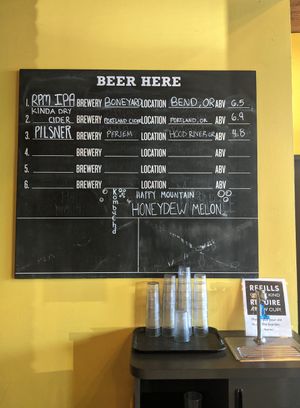 BEER HERE
1. RPM IPA BREWERY BONEYARD LOCATION BEND, OR ABV 6.5
KINDA DRY
2. CIDER BREWERY PORTLAND CIDER LOCATION PORTLAND, OR ABV 6.9
3. PILSNER BREWERY PFRIEM LOCATION HOOD RIVER OR ABV 4.8
4. BREWERY LOCATION ABV
5. BREWERY LOCATION ABV
6. BREWERY LOCATION ABV
Kombucha
HAPPY MOUNTAIN
HONEYDEW MELON
REFILLS
KIND
REQUIRE
CUP!